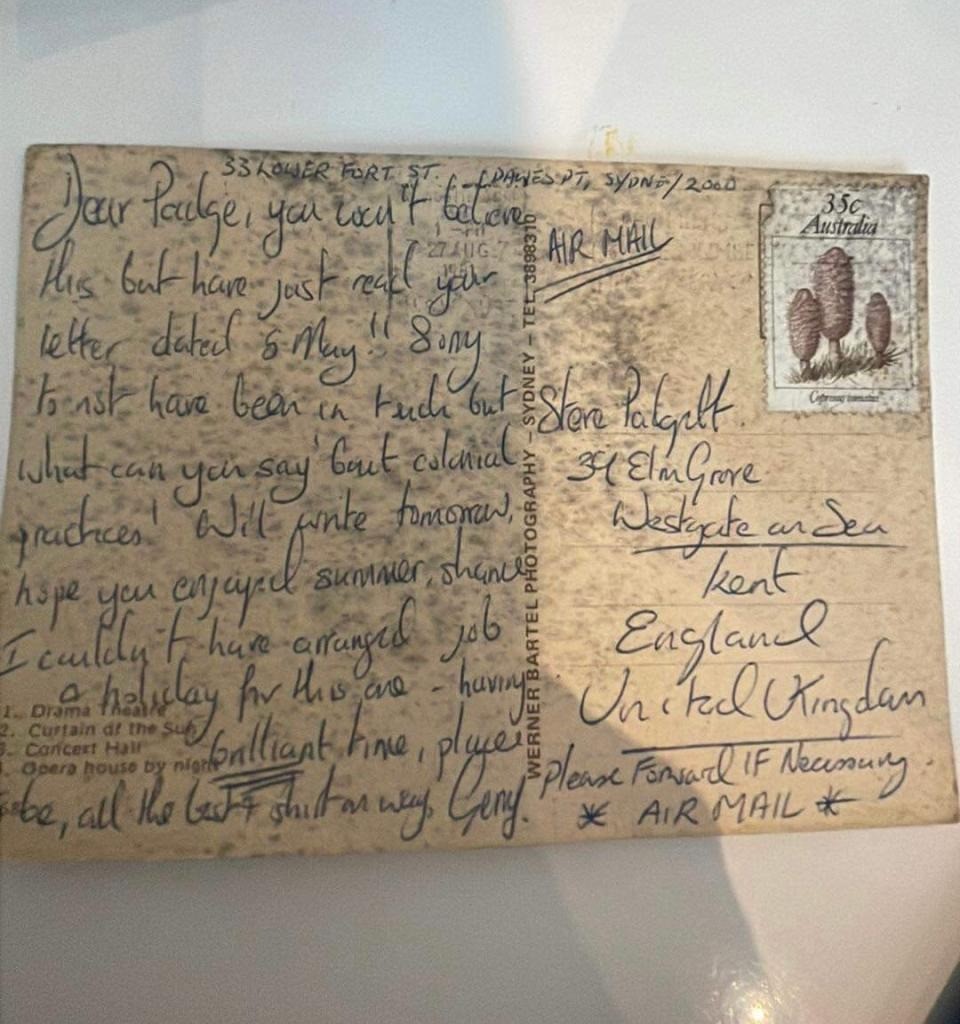 33 LOWER FORT ST. DAWES PT, SYDNEY/2000
Dear Padge, you won't believe
this but have just read your
letter dated 5 May!! Sorry
to not have been in touch but
what can you say 'bout colonial
practices! Will write tomorrow,
hope you enjoyed summer, shame
I couldn't have arranged job
a holiday for this one - having
brilliant time, place
be, all the best & shirt on way, Gerry.
1. Drama Theatre
2. Curtain of the Sun
3. Concert Hall
4. Opera house by night
27 AUG
WERNER BARTEL PHOTOGRAPHY - SYDNEY - TEL. 3898310
AIR MAIL
35c
Australia
Steve
39 Elm Grove
Westgate on Sea
Kent
England
United Kingdom
Please Forward IF Necessary.
* AIR MAIL *